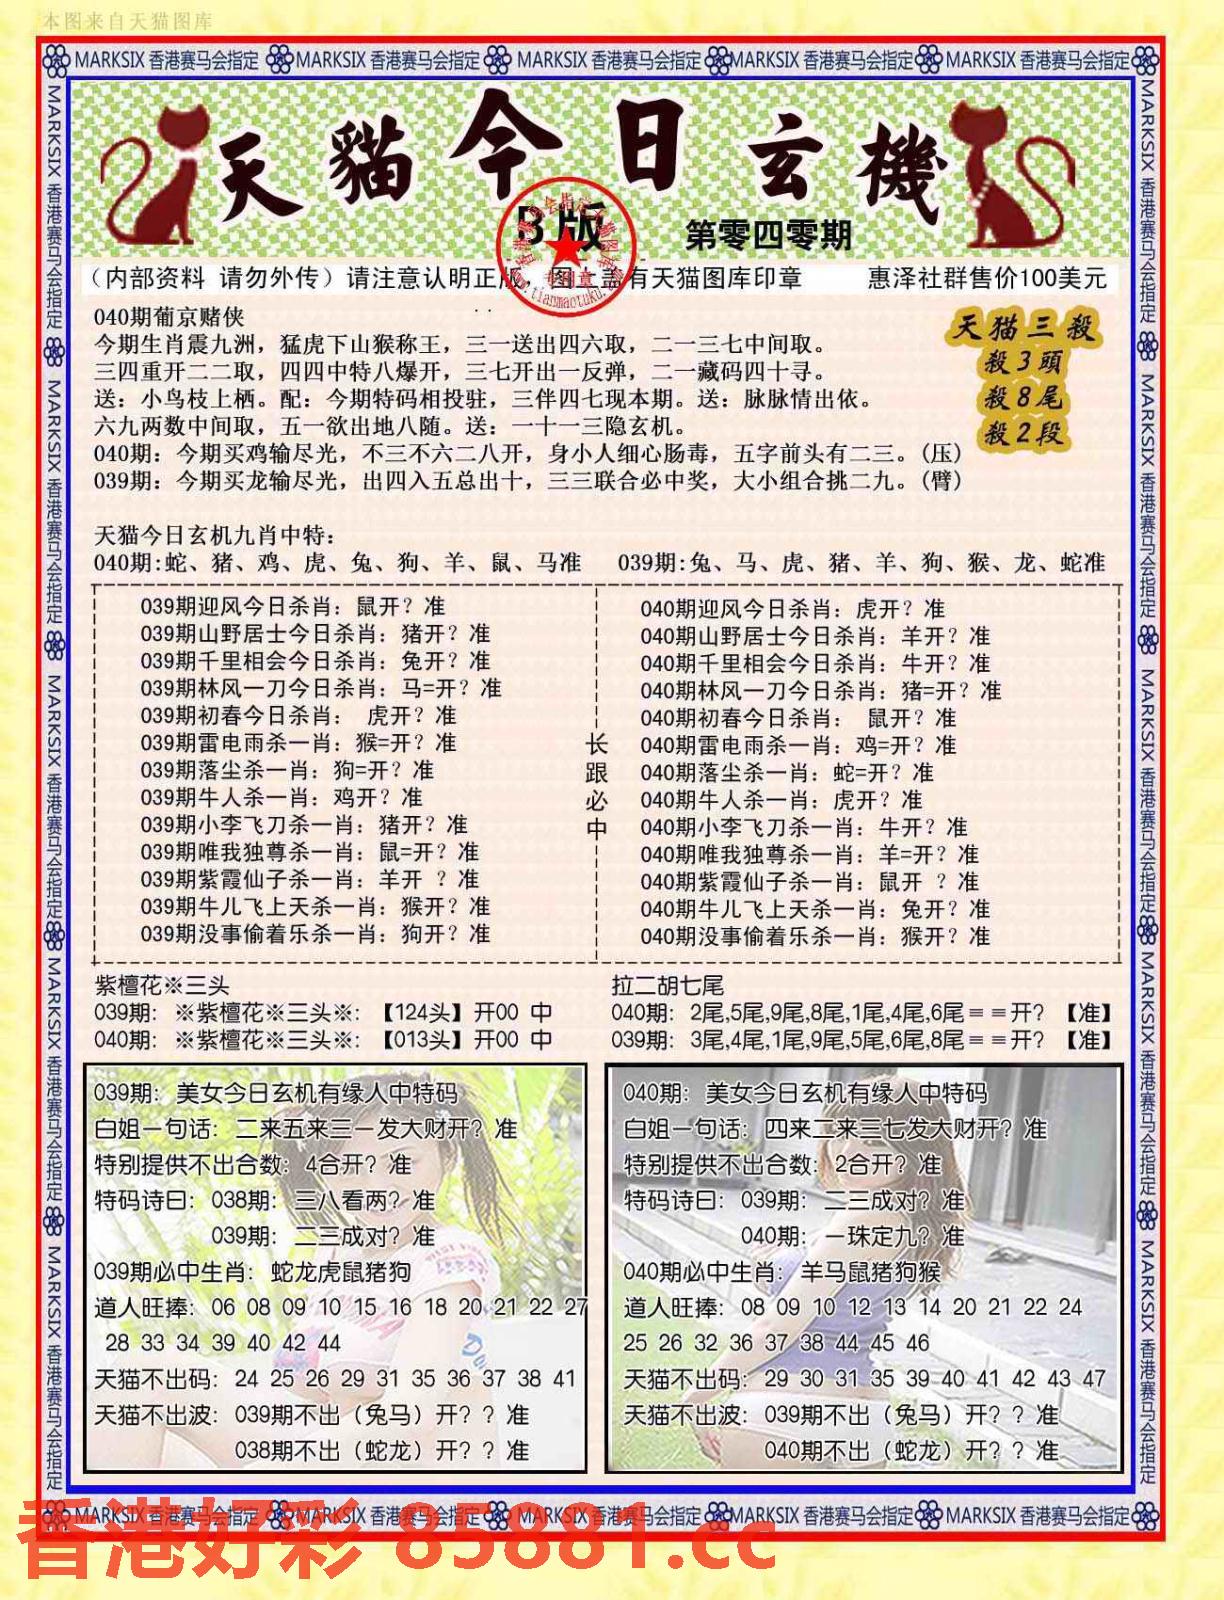 本图来自天猫图库
MARKSIX 香港赛马会指定 MARKSIX 香港赛马会指定 MARKSIX 香港赛马会指定 MARKSIX 香港赛马会指定 MARKSIX 香港赛马会指定
天貓今日玄機
B版 第零四零期
（内部资料 请勿外传）请注意认明正版，图上盖有天猫图库印章 惠泽社群售价100美元
040期葡京赌侠
今期生肖震九洲，猛虎下山猴称王，三一送出四六取，二一三七中间取。
三四重开二二取，四四中特八爆开，三七开出一反弹，二一藏码四十寻。
送：小鸟枝上栖。配：今期特码相投驻，三伴四七现本期。送：脉脉情出依。
六九两数中间取，五一欲出地八随。送：一十一三隐玄机。
040期：今期买鸡输尽光，不三不六二八开，身小人细心肠毒，五字前头有二三。(压)
039期：今期买龙输尽光，出四入五总出十，三三联合必中奖，大小组合挑二九。(臂)
天猫三殺
殺3頭
殺8尾
殺2段
天猫今日玄机九肖中特：
040期:蛇、猪、鸡、虎、兔、狗、羊、鼠、马准 039期:兔、马、虎、猪、羊、狗、猴、龙、蛇准
039期迎风今日杀肖：鼠开？准
039期山野居士今日杀肖：猪开？准
039期千里相会今日杀肖：兔开？准
039期林风一刀今日杀肖：马=开？准
039期初春今日杀肖： 虎开？准
039期雷电雨杀一肖：猴=开？准
039期落尘杀一肖：狗=开？准
039期牛人杀一肖：鸡开？准
039期小李飞刀杀一肖：猪开？准
039期唯我独尊杀一肖：鼠=开？准
039期紫霞仙子杀一肖：羊开 ？准
039期牛儿飞上天杀一肖：猴开？准
039期没事偷着乐杀一肖：狗开？准
长跟必中
040期迎风今日杀肖：虎开？准
040期山野居士今日杀肖：羊开？准
040期千里相会今日杀肖：牛开？准
040期林风一刀今日杀肖：猪=开？准
040期初春今日杀肖： 鼠开？准
040期雷电雨杀一肖：鸡=开？准
040期落尘杀一肖：蛇=开？准
040期牛人杀一肖：虎开？准
040期小李飞刀杀一肖：牛开？准
040期唯我独尊杀一肖：羊=开？准
040期紫霞仙子杀一肖：鼠开 ？准
040期牛儿飞上天杀一肖：兔开？准
040期没事偷着乐杀一肖：猴开？准
紫檀花※三头
039期：※紫檀花※三头※：【124头】开00 中
040期：※紫檀花※三头※：【013头】开00 中
拉二胡七尾
040期：2尾,5尾,9尾,8尾,1尾,4尾,6尾＝＝开？【准】
039期：3尾,4尾,1尾,9尾,5尾,6尾,8尾＝＝开？【准】
039期：美女今日玄机有缘人中特码
白姐一句话：二来五来三一发大财开？准
特别提供不出合数：4合开？准
特码诗曰：038期：三八看两？准
039期：二三成对？准
039期必中生肖：蛇龙虎鼠猪狗
道人旺捧：06 08 09 10 15 16 18 20 21 22 27
28 33 34 39 40 42 44
天猫不出码：24 25 26 29 31 35 36 37 38 41
天猫不出波：039期不出（兔马）开？？准
038期不出（蛇龙）开？？准
040期：美女今日玄机有缘人中特码
白姐一句话：四来二来三七发大财开？准
特别提供不出合数：2合开？准
特码诗曰：039期：二三成对？准
040期：一珠定九？准
040期必中生肖：羊马鼠猪狗猴
道人旺捧：08 09 10 12 13 14 20 21 22 24
25 26 32 36 37 38 44 45 46
天猫不出码：29 30 31 35 39 40 41 42 43 47
天猫不出波：039期不出（兔马）开？？准
040期不出（蛇龙）开？？准
MARKSIX 香港赛马会指定 MARKSIX 香港赛马会指定 MARKSIX 香港赛马会指定 MARKSIX 香港赛马会指定 MARKSIX 香港赛马会指定
MARKSIX 香港赛马会指定 MARKSIX 香港赛马会指定 MARKSIX 香港赛马会指定 MARKSIX 香港赛马会指定 MARKSIX 香港赛马会指定
MARKSIX 香港赛马会指定 MARKSIX 香港赛马会指定 MARKSIX 香港赛马会指定 MARKSIX 香港赛马会指定 MARKSIX 香港赛马会指定
香港好彩 85881.cc